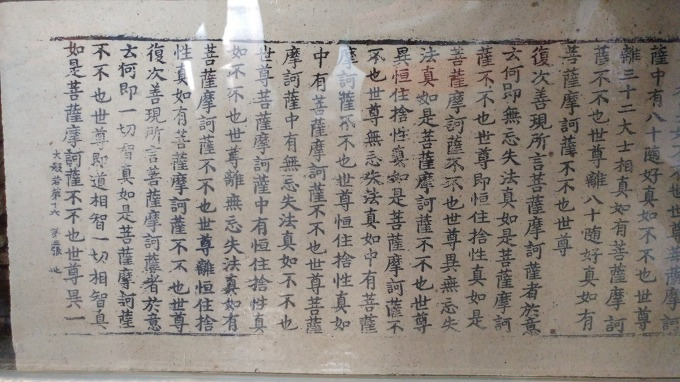 薩中有八十隨好真如不不也世尊
離三十二大士相真如有菩薩摩訶
薩不不也世尊離八十隨好真如有
菩薩摩訶薩不不也世尊
復次善現所言菩薩摩訶薩者於意
云何即無忘失法真如是菩薩摩訶
薩不不也世尊即恒住捨性真如是
菩薩摩訶薩不不也世尊異無忘失
法真如是菩薩摩訶薩不不也世尊
異恒住捨性真如是菩薩摩訶薩不
不也世尊無忘失法真如中有菩薩
摩訶薩不不也世尊恒住捨性真如
中有菩薩摩訶薩不不也世尊菩薩
摩訶薩中有無忘失法真如不不也
世尊菩薩摩訶薩中有恒住捨性真
如不不也世尊離無忘失法真如有
菩薩摩訶薩不不也世尊離恒住捨
性真如有菩薩摩訶薩不不也世尊
復次善現所言菩薩摩訶薩者於意
云何即一切智真如是菩薩摩訶薩
不不也世尊即道相智一切相智真
如是菩薩摩訶薩不不也世尊異一
大般若第十六